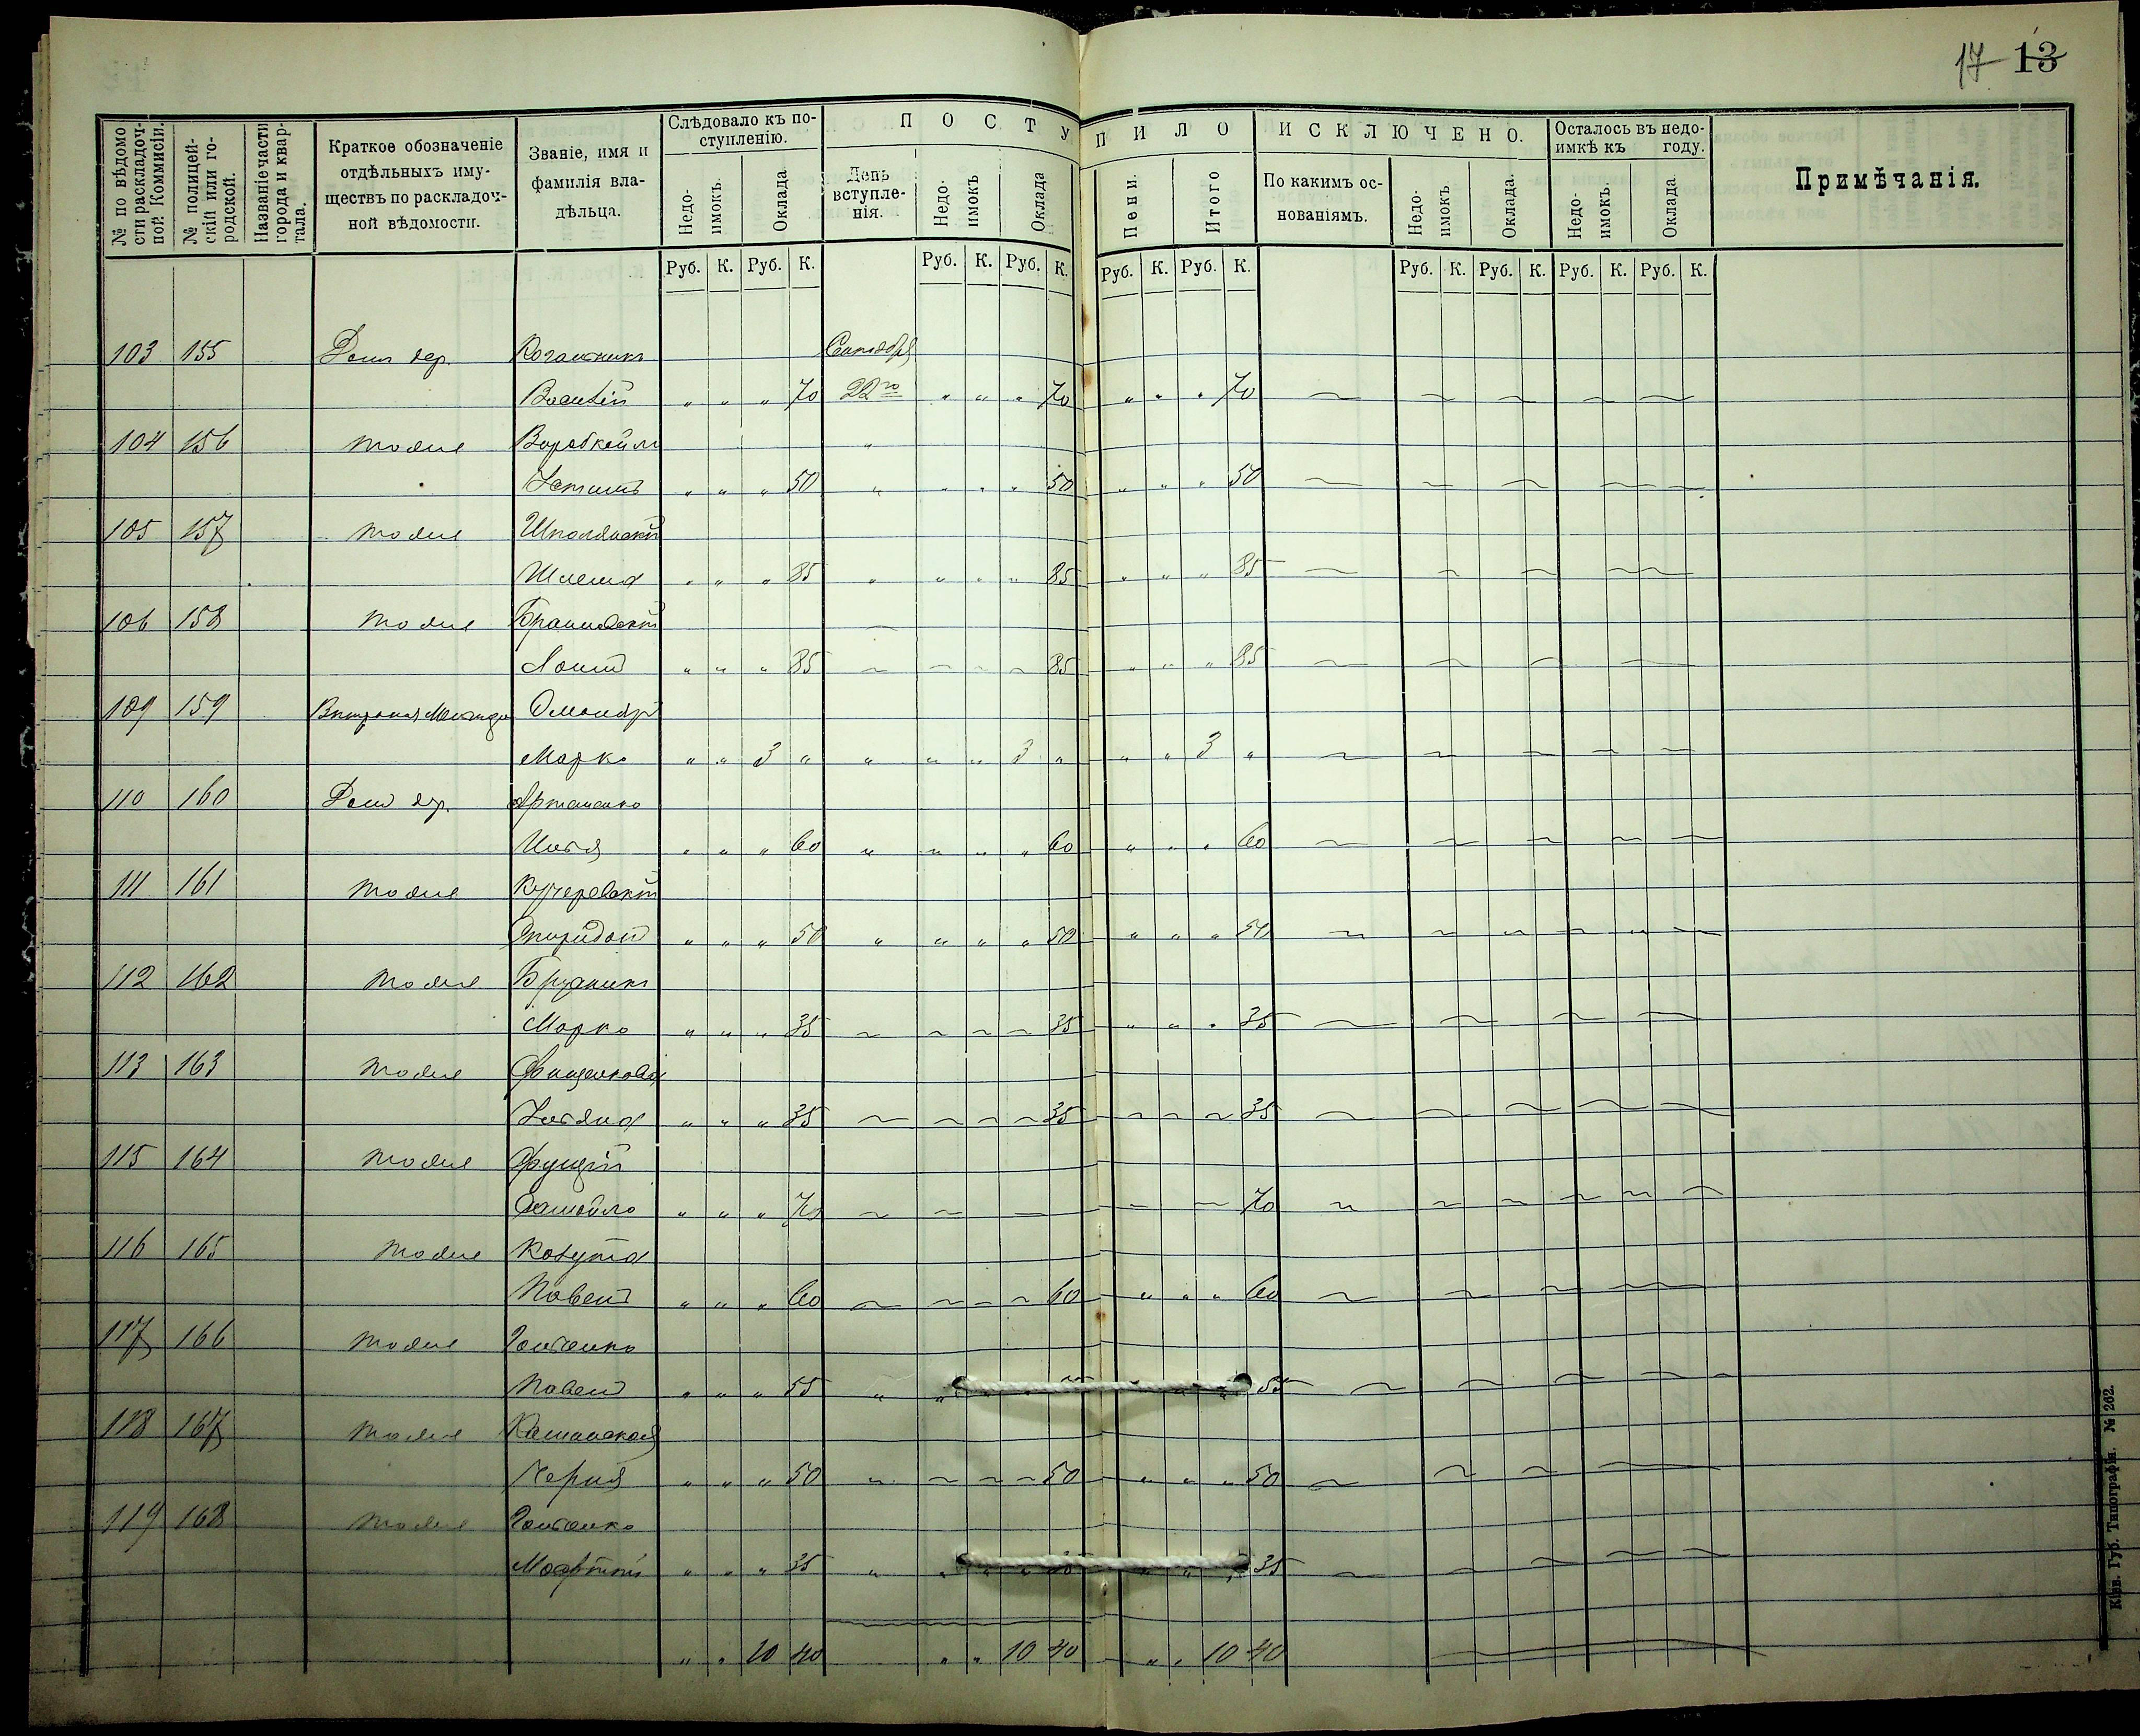 17 13
№ по вѣдомости раскладочной Коммисіи.
№ полицейскій или городской.
Названіе части города и квартала.
Краткое обозначеніе отдѣльныхъ имуществъ по раскладочной вѣдомости.
Званіе, имя и фамилія владѣльца.
Слѣдовало къ поступленію.
Недоимокъ.
Оклада.
ПОСТУПИЛО
День вступленія.
Недоимокъ
Оклада
Пени.
Итого
ИСКЛЮЧЕНО.
По какимъ основаніямъ.
Недоимокъ.
Оклада.
Осталось въ недоимкѣ къ году.
Недоимокъ.
Оклада.
Примѣчанія.
Руб. К. Руб. К. Руб. К. Руб. К. Руб. К. Руб. К. Руб. К. Руб. К. Руб. К. Руб. К.
103 155 Домъ дер. Сентября
" " " 70 22го " " " 70 " " " 70
104 156 тоже "
" " " 50 " " " " 50 " " " 50
105 157 тоже Шполянскій
Шлема " " " 85 " " " " 85 " " " 85
106 158 тоже
" " " 85 85 " " " 85
109 159
Марко " " 3 " " " " 3 " " " 3 "
110 160 Домъ дер. Артеменко
" " " 60 " " " " 60 " " " 60
111 161 тоже Кучеревскій
Спиридонъ " " " 50 " " " " 50 " " " 50
112 162 тоже
Марко " " " 35 35 " " " 35
113 163 тоже
" " " 35 35 35
115 164 тоже
Самойло " " " 70 70
116 165 тоже
Павелъ " " " 60 60 " " " 60
117 166 тоже
Павелъ " " " 55 " " 55
118 167 тоже
" " " 50 " 50 " " " 50
119 168 тоже
" " " 35 " " 35
" " 10 40 " " 10 40 " " 10 40
Кіев. Губ. Типографія. № 262.